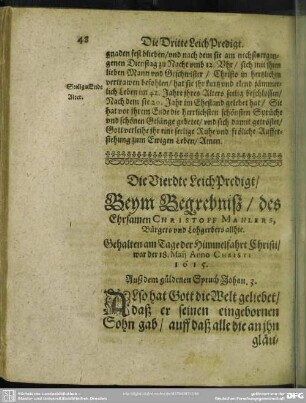 48
Die Dritte LeichPredigt.
gnaden fest blieben / und nach dem sie am nechstvergangenen
Dienstag zu Nacht umb 12. Uhr / sich mit ihrem
lieben Mann und Geschwister / Christo in hertzlichen
vertrawen befohlen / hat sie ihr kurtz und elend
Seelig Ende
Leben im 42. Jahre ihres Alters seelig beschlossen /
Alter.
Nach dem sie 20. Jahr im Ehestand gelebet hat / Sie
hat vor ihrem Ende die herrlichsten schönsten Sprüche
und schönen Gesänge gebetet / und sich damit getröstet /
Gott verleihe ihr eine seelige Ruhe und fröliche Aufferstehung
zum Ewigen Leben / Amen.
Die Vierdte LeichPredigt /
Beym Begrebniß / des
Ehrsamen CHRISTOFF MAHLERS,
Bürgers und Lohgerbers allhie.
Gehalten am Tage der Himmelfahrt Christi /
war der 18. Maij Anno CHRISTI
1615.
Auß dem güldenen Spruch Johan. 3.
ALso hat Gott die Welt geliebet /
daß er seinen eingebornen
Sohn gab / auff daß alle die an ihn
gläu-